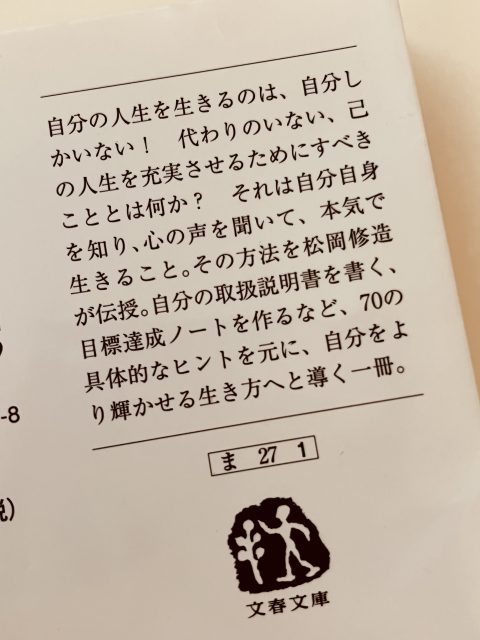 自分の人生を生きるのは、自分し
かいない！　代わりのいない、己
の人生を充実させるためにすべき
こととは何か？　それは自分自身
を知り、心の声を聞いて、本気で
生きること。その方法を松岡修造
が伝授。自分の取扱説明書を書く、
目標達成ノートを作るなど、70の
具体的なヒントを元に、自分をよ
り輝かせる生き方へと導く一冊。
-8
ま 27 1
文春文庫